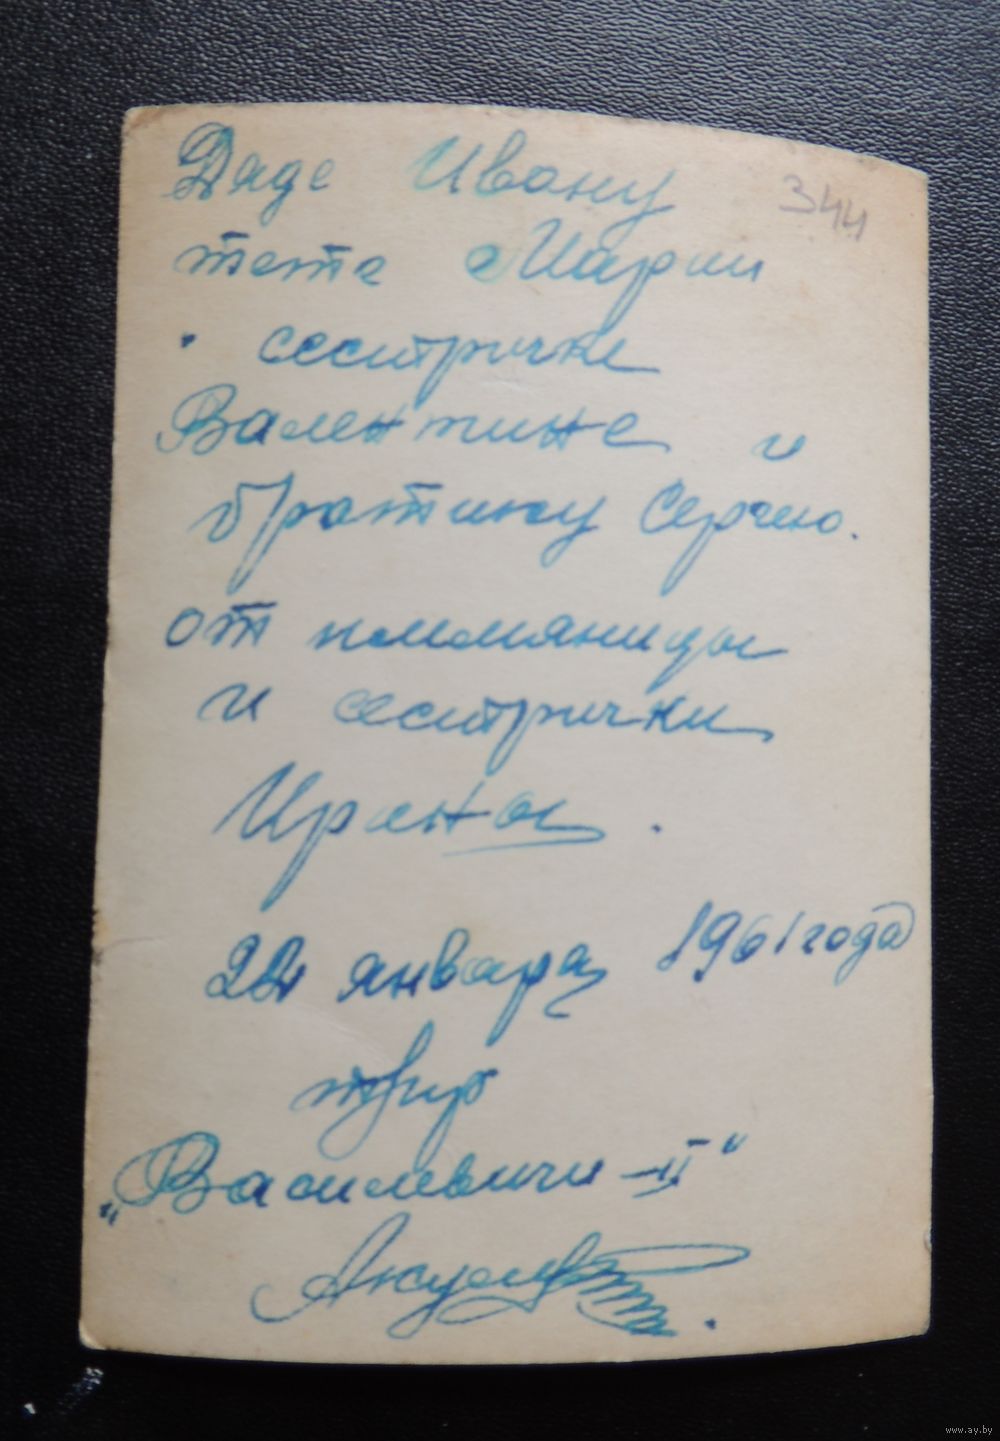 Дяде Ивану
344
тете Марии
сестричке
Валентине и
братику Сергею.
от племяницы
и сестрички
Ирены.
22 января 1961 года
"Василевичи-II"
www.ay.by